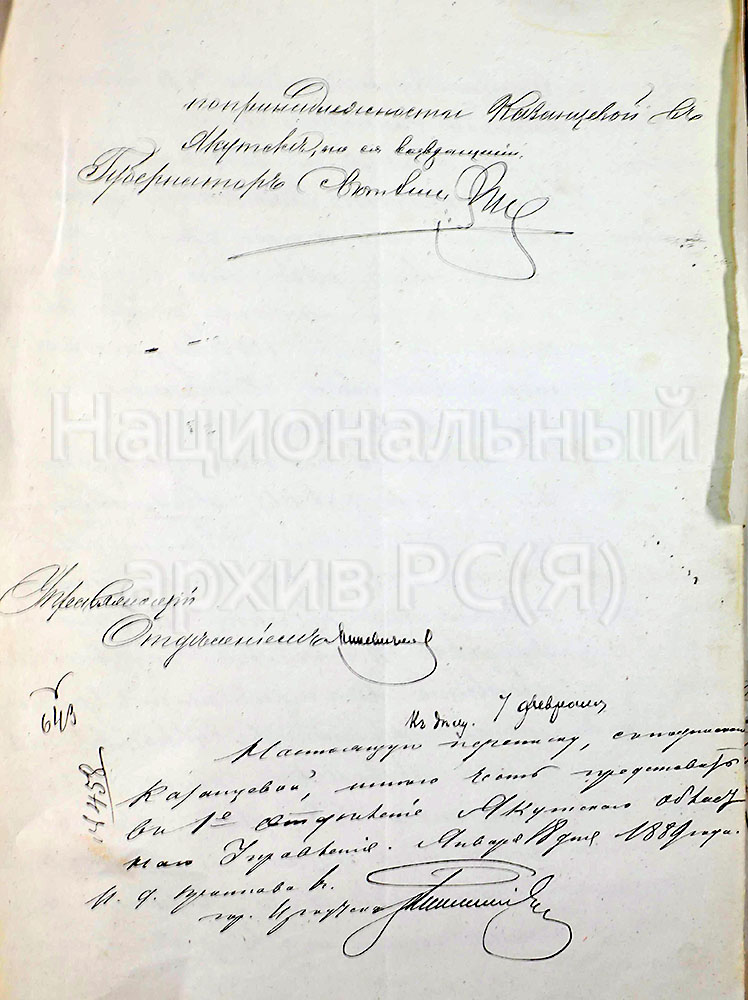 попринадлежности Казанцевой въ
Якутскѣ, по ея возвращеніи.
Губернаторъ Свѣтлицкій
Национальный
архив РС(Я)
Управляющій
Отдѣленіемъ
643
Къ дѣлу. 7 февраля
№ 458
Настоящую переписку, съ подпискою
Казанцевой, имѣю честь представить
въ 1е отдѣленіе Якутскаго област
наго Управленія. Января 18 дня 1889 года.
И. д.